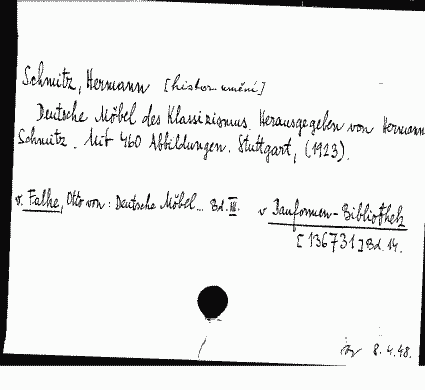 Schmitz, Hermann [histor. umění]
Deutsche Möbel des Klassizismus. Herausgegeben von Hermann
Schmitz. Mit 460 Abbildungen. Stuttgart, (1923).
v. Falke, Otto von: Deutsche Möbel... Bd. III. v Bauformen-Bibliothek
[136731] Bd. 14.
8.4.48.